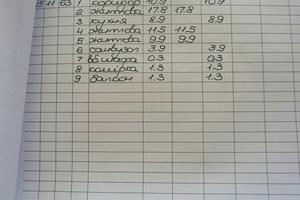 5 11 63 1 коридор 10.9 10.9
2 житлова 17.8 17.8
3 кухня 8.9 8.9
4 житлова 11.5 11.5
5 житлова 9.9 9.9
6 санвузол 3.9 3.9
7 вб.шафа 0.3 0.3
8 комірка 1.3 1.3
9 балкон 1.3 1.3